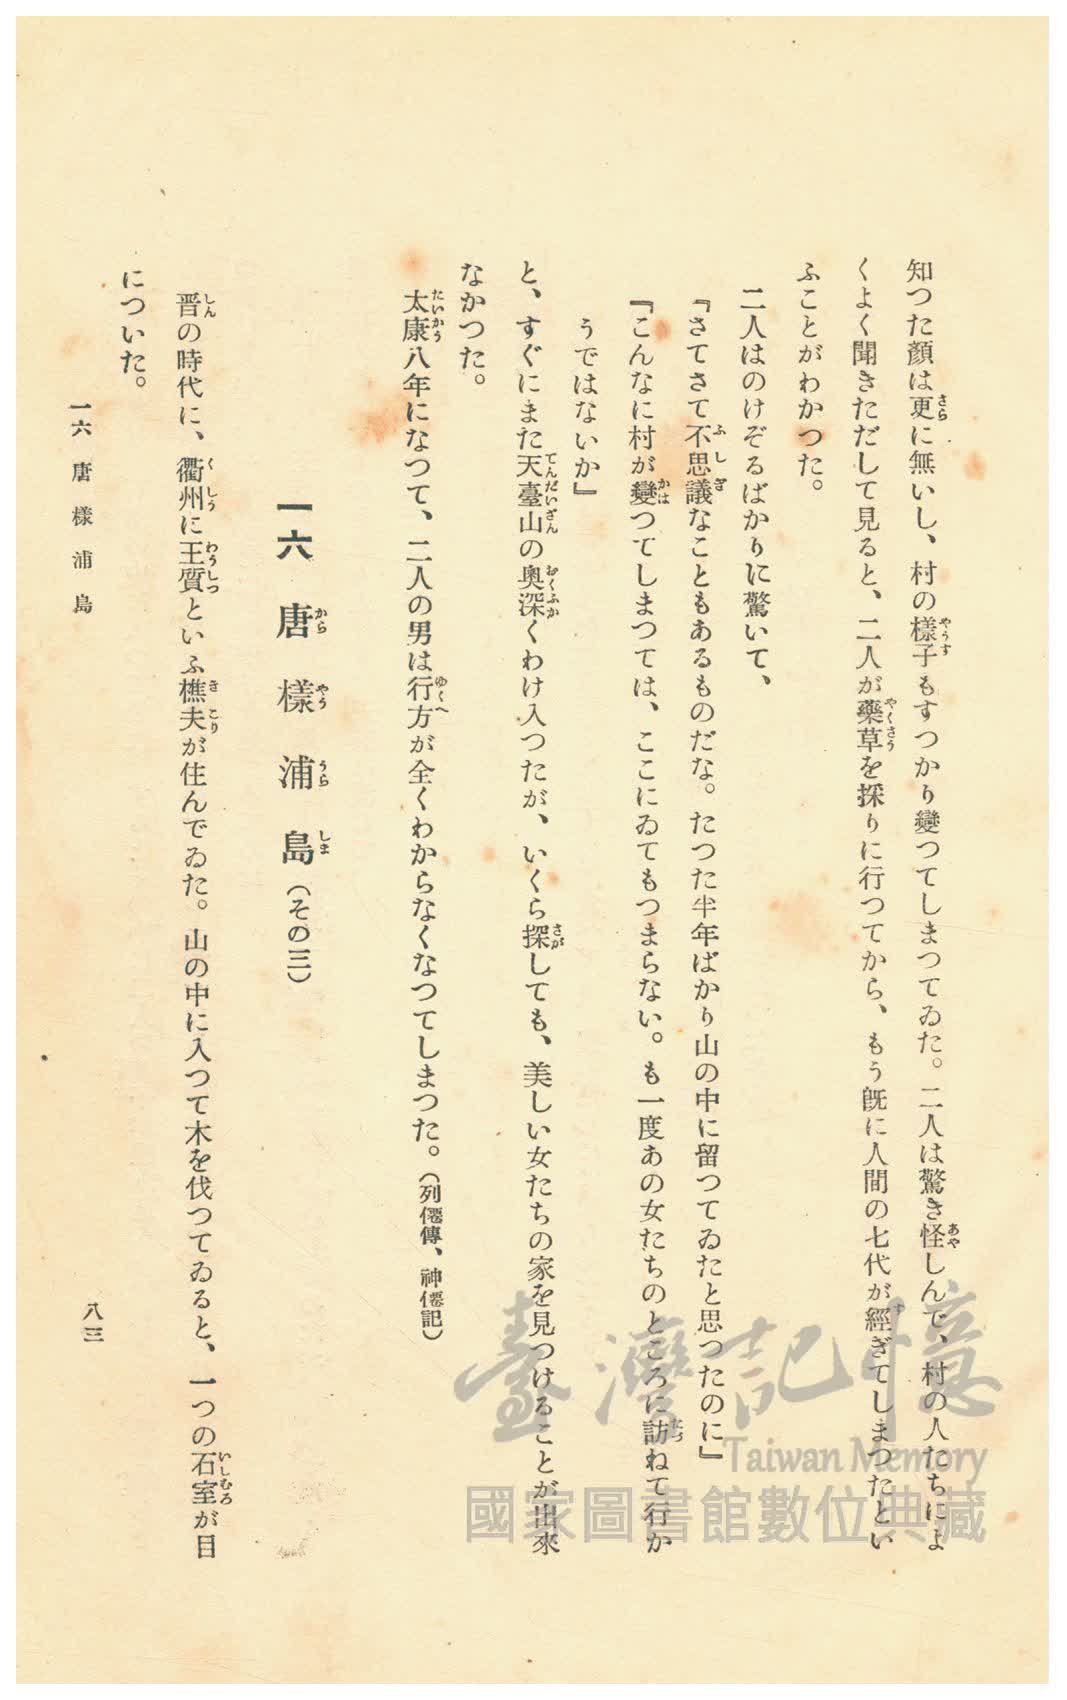 知つた顏は更に無いし、村の樣子もすつかり變つてしまつてゐた。二人は驚き怪しんで、村の人たちによ
くよく聞きただして見ると、二人が藥草を採りに行つてから、もう旣に人間の七代が經ぎてしまつたとい
ふことがわかつた。
二人はのけぞるばかりに驚いて、
『さてさて不思議なこともあるものだな。たつた半年ばかり山の中に留つてゐたと思つたのに』
『こんなに村が變つてしまつては、ここにゐてもつまらない。も一度あの女たちのところに訪ねて行か
うではないか』
と、すぐにまた天臺山の奧深くわけ入つたが、いくら探しても、美しい女たちの家を見つけることが出來
なかつた。
太康八年になつて、二人の男は行方が全くわからなくなつてしまつた。（列僊傳、神僊記）
一六 唐樣浦島（その三）
晋の時代に、衢州に王質といふ樵夫が住んでゐた。山の中に入つて木を伐つてゐると、一つの石室が目
についた。
一六 唐樣浦島
八三
臺灣記憶
Taiwan Memory
國家圖書館數位典藏